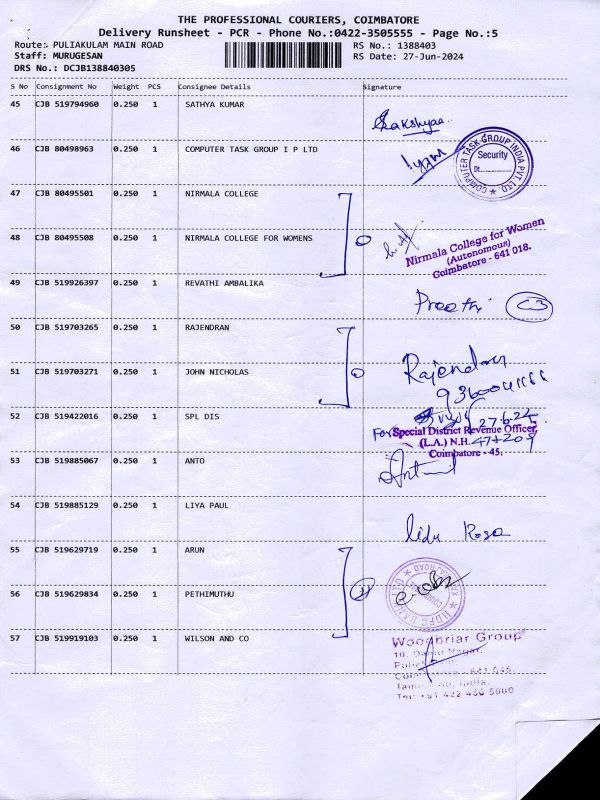 THE PROFESSIONAL COURIERS, COIMBATORE
Delivery Runsheet - PCR - Phone No.:0422-3505555 - Page No.:5
Route: PULIAKULAM MAIN ROAD RS No.: 1388403
Staff: MURUGESAN RS Date: 27-Jun-2024
DRS No.: DCJB138840305
S No Consignment No Weight PCS Consignee Details Signature
45 CJB 519794960 0.250 1 SATHYA KUMAR
Sakshyaa
46 CJB 80498963 0.250 1 COMPUTER TASK GROUP I P LTD
COMPUTER TASK GROUP INDIA PVT. LTD
Security
Dt
47 CJB 80495501 0.250 1 NIRMALA COLLEGE
48 CJB 80495508 0.250 1 NIRMALA COLLEGE FOR WOMENS
Nirmala College for Women
(Autonomous)
Coimbatore - 641 018.
49 CJB 519926397 0.250 1 REVATHI AMBALIKA
Preethi C3
50 CJB 519703265 0.250 1 RAJENDRAN
51 CJB 519703271 0.250 1 JOHN NICHOLAS
Rajendran
52 CJB 519422016 0.250 1 SPL DIS
27.6.24
For Special District Revenue Officer,
(L.A.) N.H. 47+209
Coimbatore - 45.
53 CJB 519885067 0.250 1 ANTO
54 CJB 519885129 0.250 1 LIYA PAUL
Rosa
55 CJB 519629719 0.250 1 ARUN
56 CJB 519629834 0.250 1 PETHIMUTHU
HDFC BANK LTD
57 CJB 519919103 0.250 1 WILSON AND CO
Woodbriar Group